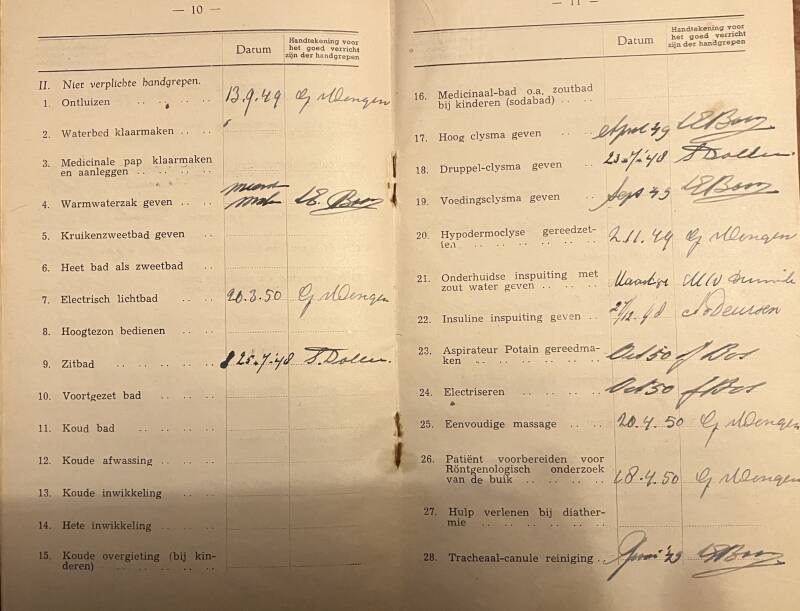 — 10 —
Datum
Handtekening voor
het goed verricht
zijn der handgrepen
II. Niet verplichte handgrepen.
1. Ontluizen 13.9.49 G Mengen
2. Waterbed klaarmaken
3. Medicinale pap klaarmaken
en aanleggen
4. Warmwaterzak geven
5. Kruikenzweetbad geven
6. Heet bad als zweetbad
7. Electrisch lichtbad 20.3.50 G Mengen
8. Hoogtezon bedienen
9. Zitbad 25.7.48
10. Voortgezet bad
11. Koud bad
12. Koude afwassing
13. Koude inwikkeling
14. Hete inwikkeling
15. Koude overgieting (bij kin-
deren)
— 11 —
Datum
Handtekening voor
het goed verricht
zijn der handgrepen
16. Medicinaal-bad o.a. zoutbad
bij kinderen (sodabad)
17. Hoog clysma geven April 49
18. Druppel-clysma geven 23-7-48
19. Voedingsclysma geven Sept 49
20. Hypodermoclyse gereedzet-
ten 2.11.49 G Mengen
21. Onderhuidse inspuiting met
zout water geven
22. Insuline inspuiting geven 27/12.48
23. Aspirateur Potain gereedma-
ken Oct 50 J Bos
24. Electriseren Oct 50 J Bos
25. Eenvoudige massage 20.4.50 G Mengen
26. Patiënt voorbereiden voor
Röntgenologisch onderzoek
van de buik 18.4.50 G Mengen
27. Hulp verlenen bij diather-
mie
28. Tracheaal-canule reiniging